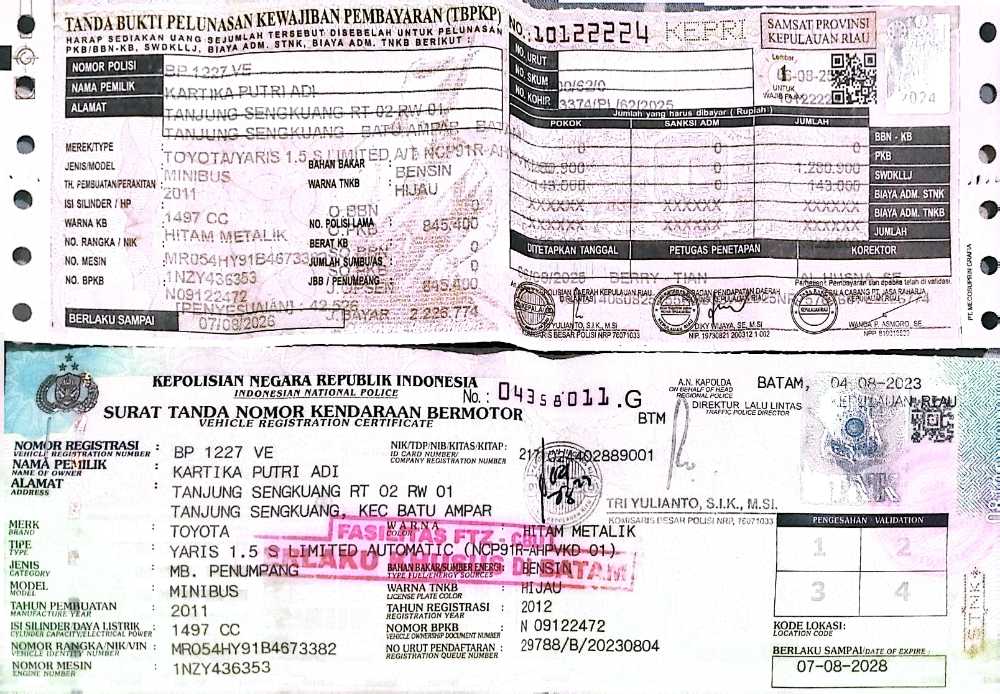 TANDA BUKTI PELUNASAN KEWAJIBAN PEMBAYARAN (TBPKP)
HARAP SEDIAKAN UANG SEJUMLAH TERSEBUT DISEBELAH UNTUK PELUNASAN
PKB/BBN-KB, SWDKLLJ, BIAYA ADM. STNK, BIAYA ADM. TNKB BERIKUT :
NO.:10122224 KEPRI
SAMSAT PROVINSI
KEPULAUAN RIAU
NOMOR POLISI BP 1227 VE
NAMA PEMILIK KARTIKA PUTRI ADI
ALAMAT TANJUNG SENGKUANG RT 02 RW 01
TANJUNG SENGKUANG BATU AMPAR
NO. URUT
NO. SKUM
NO. KOHIR
Lembar
1
UNTUK
WAJIB PAJAK
2024
Jumlah yang harus dibayar ( Rupiah )
POKOK SANKSI ADM JUMLAH
MEREK/TYPE : TOYOTA/YARIS 1.5 S LIMITED A/T NCP91R-AHP
JENIS/MODEL : MINIBUS
TH. PEMBUATAN/PERAKITAN : 2011
ISI SILINDER / HP : 1497 CC
WARNA KB : HITAM METALIK
NO. RANGKA / NIK : MR054HY91B46733
NO. MESIN : 1NZY436353
NO. BPKB : N09122472
BAHAN BAKAR : BENSIN
WARNA TNKB : HIJAU
NO. POLISI LAMA
BERAT KB
JUMLAH SUMBU/AS
JBB / PENUMPANG
845,400
0
0
845.400
0
0 0 0 BBN - KB
0 1.280.900 PKB
143.000 0 143.000 SWDKLLJ
XXXXXX XXXXXX XXXXXX BIAYA ADM. STNK
XXXXXX XXXXXX XXXXXX BIAYA ADM. TNKB
0 JUMLAH
DITETAPKAN TANGGAL PETUGAS PENETAPAN KOREKTOR
BERRY TIAN
(PENYESUAIAN) : 42.526 BAYAR 2.226.774
BERLAKU SAMPAI 07/08/2026
TRI YULIANTO, S.I.K, M.SI
KOMISARIS BESAR POLISI NRP 76071033
DIKY WIJAYA, SE, M.SI
NIP. 19730821 200312 1 002
PT. MECOSUPRIN GRAFIA
KEPOLISIAN NEGARA REPUBLIK INDONESIA
INDONESIAN NATIONAL POLICE
SURAT TANDA NOMOR KENDARAAN BERMOTOR
VEHICLE REGISTRATION CERTIFICATE
No. : 04358011.G
BTM
A.N. KAPOLDA
ON BEHALF OF HEAD
REGIONAL POLICE
DIREKTUR LALU LINTAS
TRAFFIC POLICE DIRECTOR
BATAM, 04-08-2023
KEPULAUAN RIAU
NOMOR REGISTRASI : BP 1227 VE
VEHICLE REGISTRATION NUMBER
NAMA PEMILIK : KARTIKA PUTRI ADI
NAME OF OWNER
ALAMAT : TANJUNG SENGKUANG RT 02 RW 01
ADDRESS
TANJUNG SENGKUANG, KEC BATU AMPAR
NIK/TDP/NIB/KITAS/KITAP:
ID CARD NUMBER/
COMPANY REGISTRATION NUMBER
TRI YULIANTO, S.I.K., M.SI.
KOMISARIS BESAR POLISI NRP. 76071033
MERK : TOYOTA
BRAND
WARNA : HITAM METALIK
COLOR
TIPE : YARIS 1.5 S LIMITED AUTOMATIC (NCP91R-AHPVKD 01)
TYPE
FASILITAS FTZ - CBU
BERLAKU KHUSUS DI BATAM
JENIS : MB. PENUMPANG
CATEGORY
BAHAN BAKAR/SUMBER ENERGI : BENSIN
TYPE FUEL/ENERGY SOURCES
MODEL : MINIBUS
MODEL
WARNA TNKB : HIJAU
LICENSE PLATE COLOR
TAHUN PEMBUATAN : 2011
MANUFACTURE YEAR
TAHUN REGISTRASI : 2012
REGISTRATION YEAR
ISI SILINDER/DAYA LISTRIK : 1497 CC
CYLINDER CAPACITY/ELECTRICAL POWER
NOMOR BPKB : N 09122472
VEHICLE OWNERSHIP DOCUMENT NUMBER
NOMOR RANGKA/NIK/VIN : MR054HY91B4673382
VEHICLE IDENTITY NUMBER
NO URUT PENDAFTARAN : 29788/B/20230804
REGISTRATION QUEUE NUMBER
NOMOR MESIN : 1NZY436353
ENGINE NUMBER
PENGESAHAN - VALIDATION
1 2
3 4
KODE LOKASI:
LOCATION CODE
BERLAKU SAMPAI/DATE OF EXPIRE :
07-08-2028
STNK